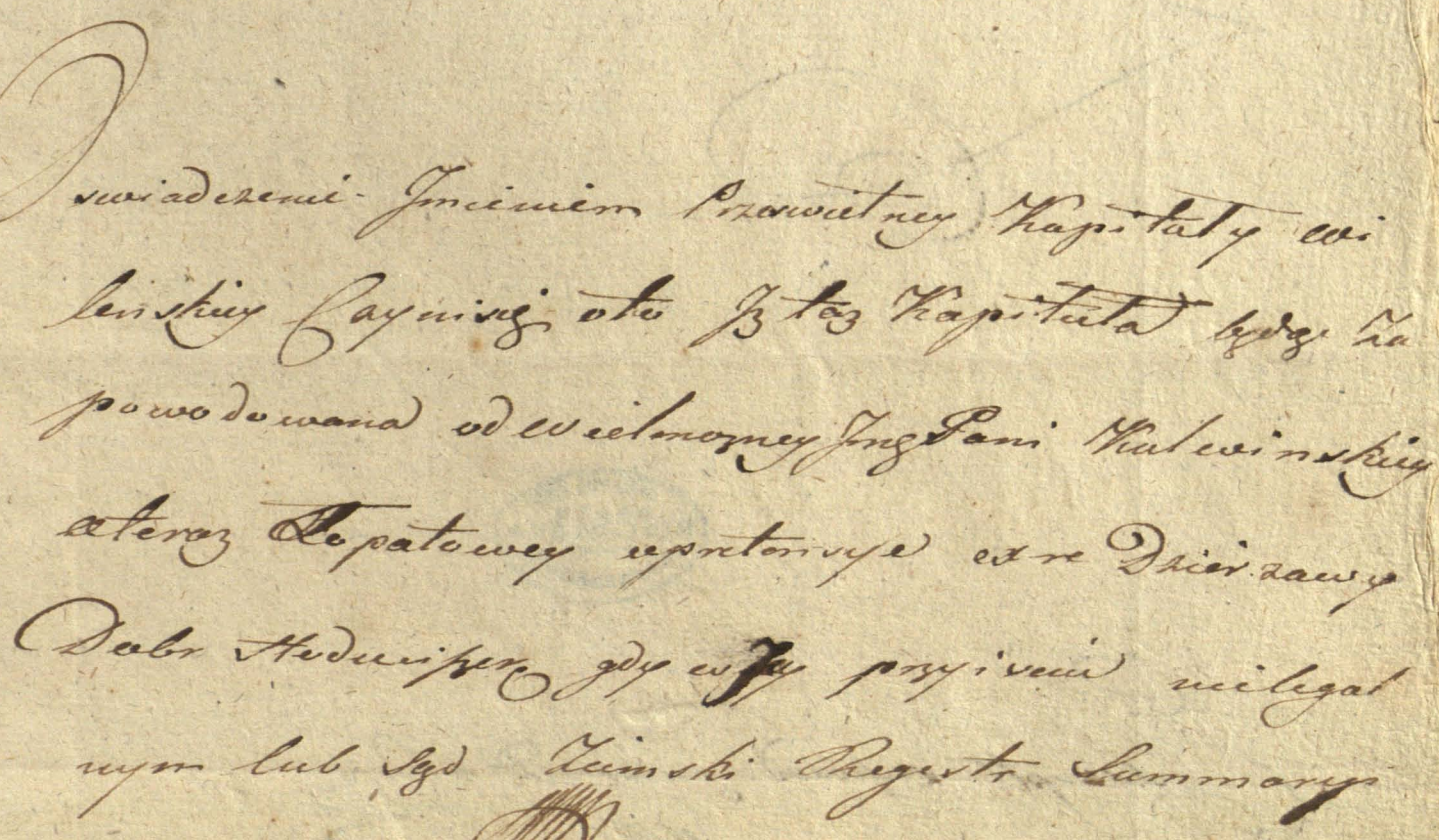 Oswiadczenie Jmieniem Przeswietney Kapituły wi
leńskiey Czyni się oto Jż taż Kapituła będąc Za
powodowana od wielmożney Jmę Pani Kalwinskiey
a teraz Łopatowey o pretensye ex re Dzierzawy
Dobr gdy w przyisciu nielegal
nym lub Sąd Ziemski Regestr Summaryi